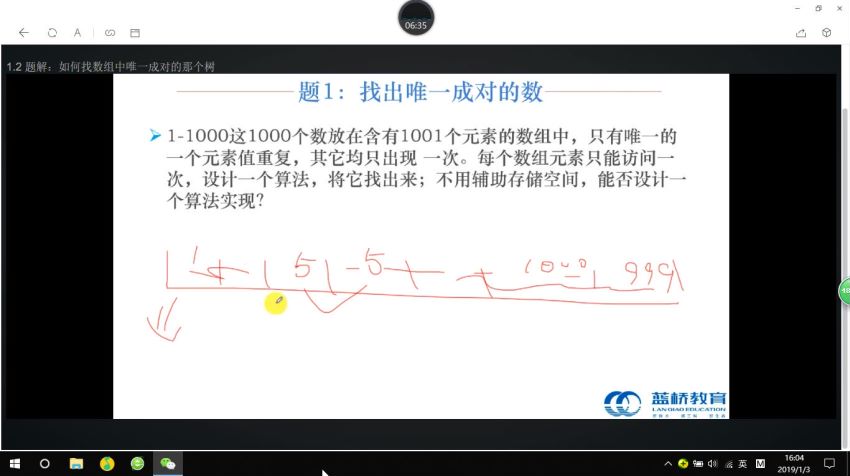 06:35
A
1.2 题解：如何找数组中唯一成对的那个树
题1：找出唯一成对的数
1-1000这1000个数放在含有1001个元素的数组中，只有唯一的
一个元素值重复，其它均只出现 一次。每个数组元素只能访问一
次，设计一个算法，将它找出来；不用辅助存储空间，能否设计一
个算法实现？
1 5 5 1000 999
48
蓝桥教育
LAN QIAO EDUCATION
英 M
16:04
2019/1/3